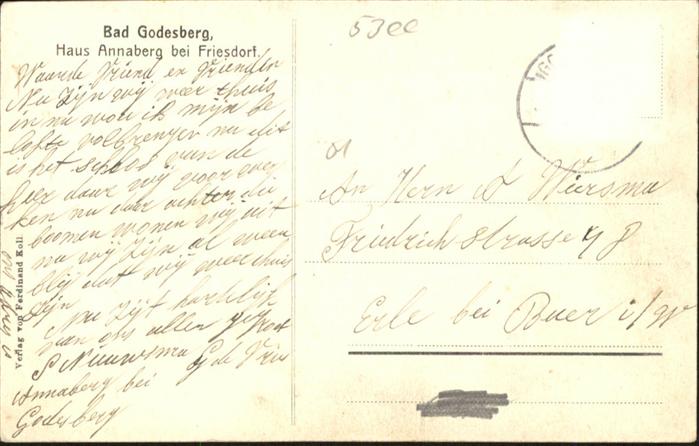 Bad Godesberg,
Haus Annaberg bei Friesdorf.
Waarde Vriend en Vriendin
Nu zijn wij weer thuis
en nu wou ik mijn be
lofte volbrengen nu dit
is het schloss van de
heer daar wij voor wer
ken nu daar achter die
boomen wonen wij uit
nu wij zijn al weer
blij dat wij weer thuis
zijn
Nu zijt hartelijk
van ons allen gegroet
P Nieuwsma G de Vries
Annaberg bei
Godesberg
Verlag von Ferdinand Koll
53cc
An Hern A Wiersma
Friedrich strasse
Erle bei Buer i/W